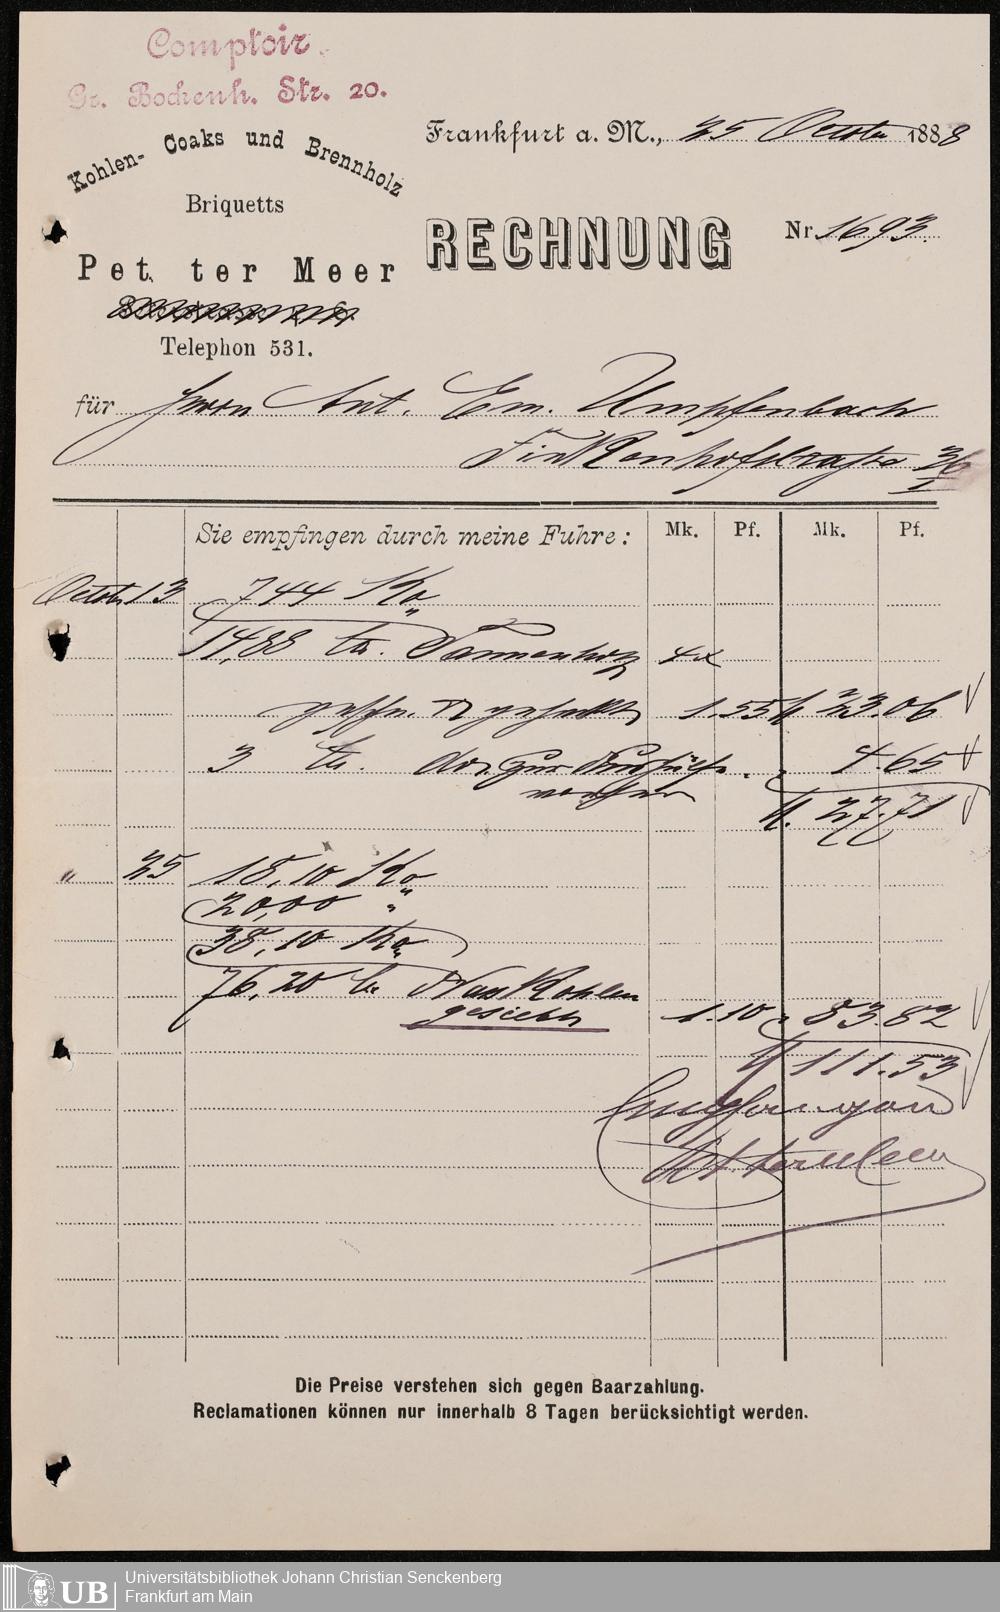 Comptoir.
Gr. Bockenh. Str. 20.
Kohlen- Coaks und Brennholz
Briquetts
Pet. ter Meer
Telephon 531.
Frankfurt a. M., 25 October 1888
RECHNUNG
Nr. 1693.
für Herrn Ant. Em. Umpfenbach
Finkenhofstrasse 36/I
Sie empfingen durch meine Fuhre: Mk. Pf. Mk. Pf.
Octob 13 744 Ko
14,88 Ctr. Tannenholz
1.55 M 23.06
3 Ctr. do. zur 4.65
M. 27.71
" 25 18,10 Ko
20,00 "
38,10 Ko
76,20 Ctr Nusskohlen
gesiebt 1.10 " 83.82
M 111.53
Empfangen
Pet. ter Meer
Die Preise verstehen sich gegen Baarzahlung.
Reclamationen können nur innerhalb 8 Tagen berücksichtigt werden.
UB Universitätsbibliothek Johann Christian Senckenberg
Frankfurt am Main